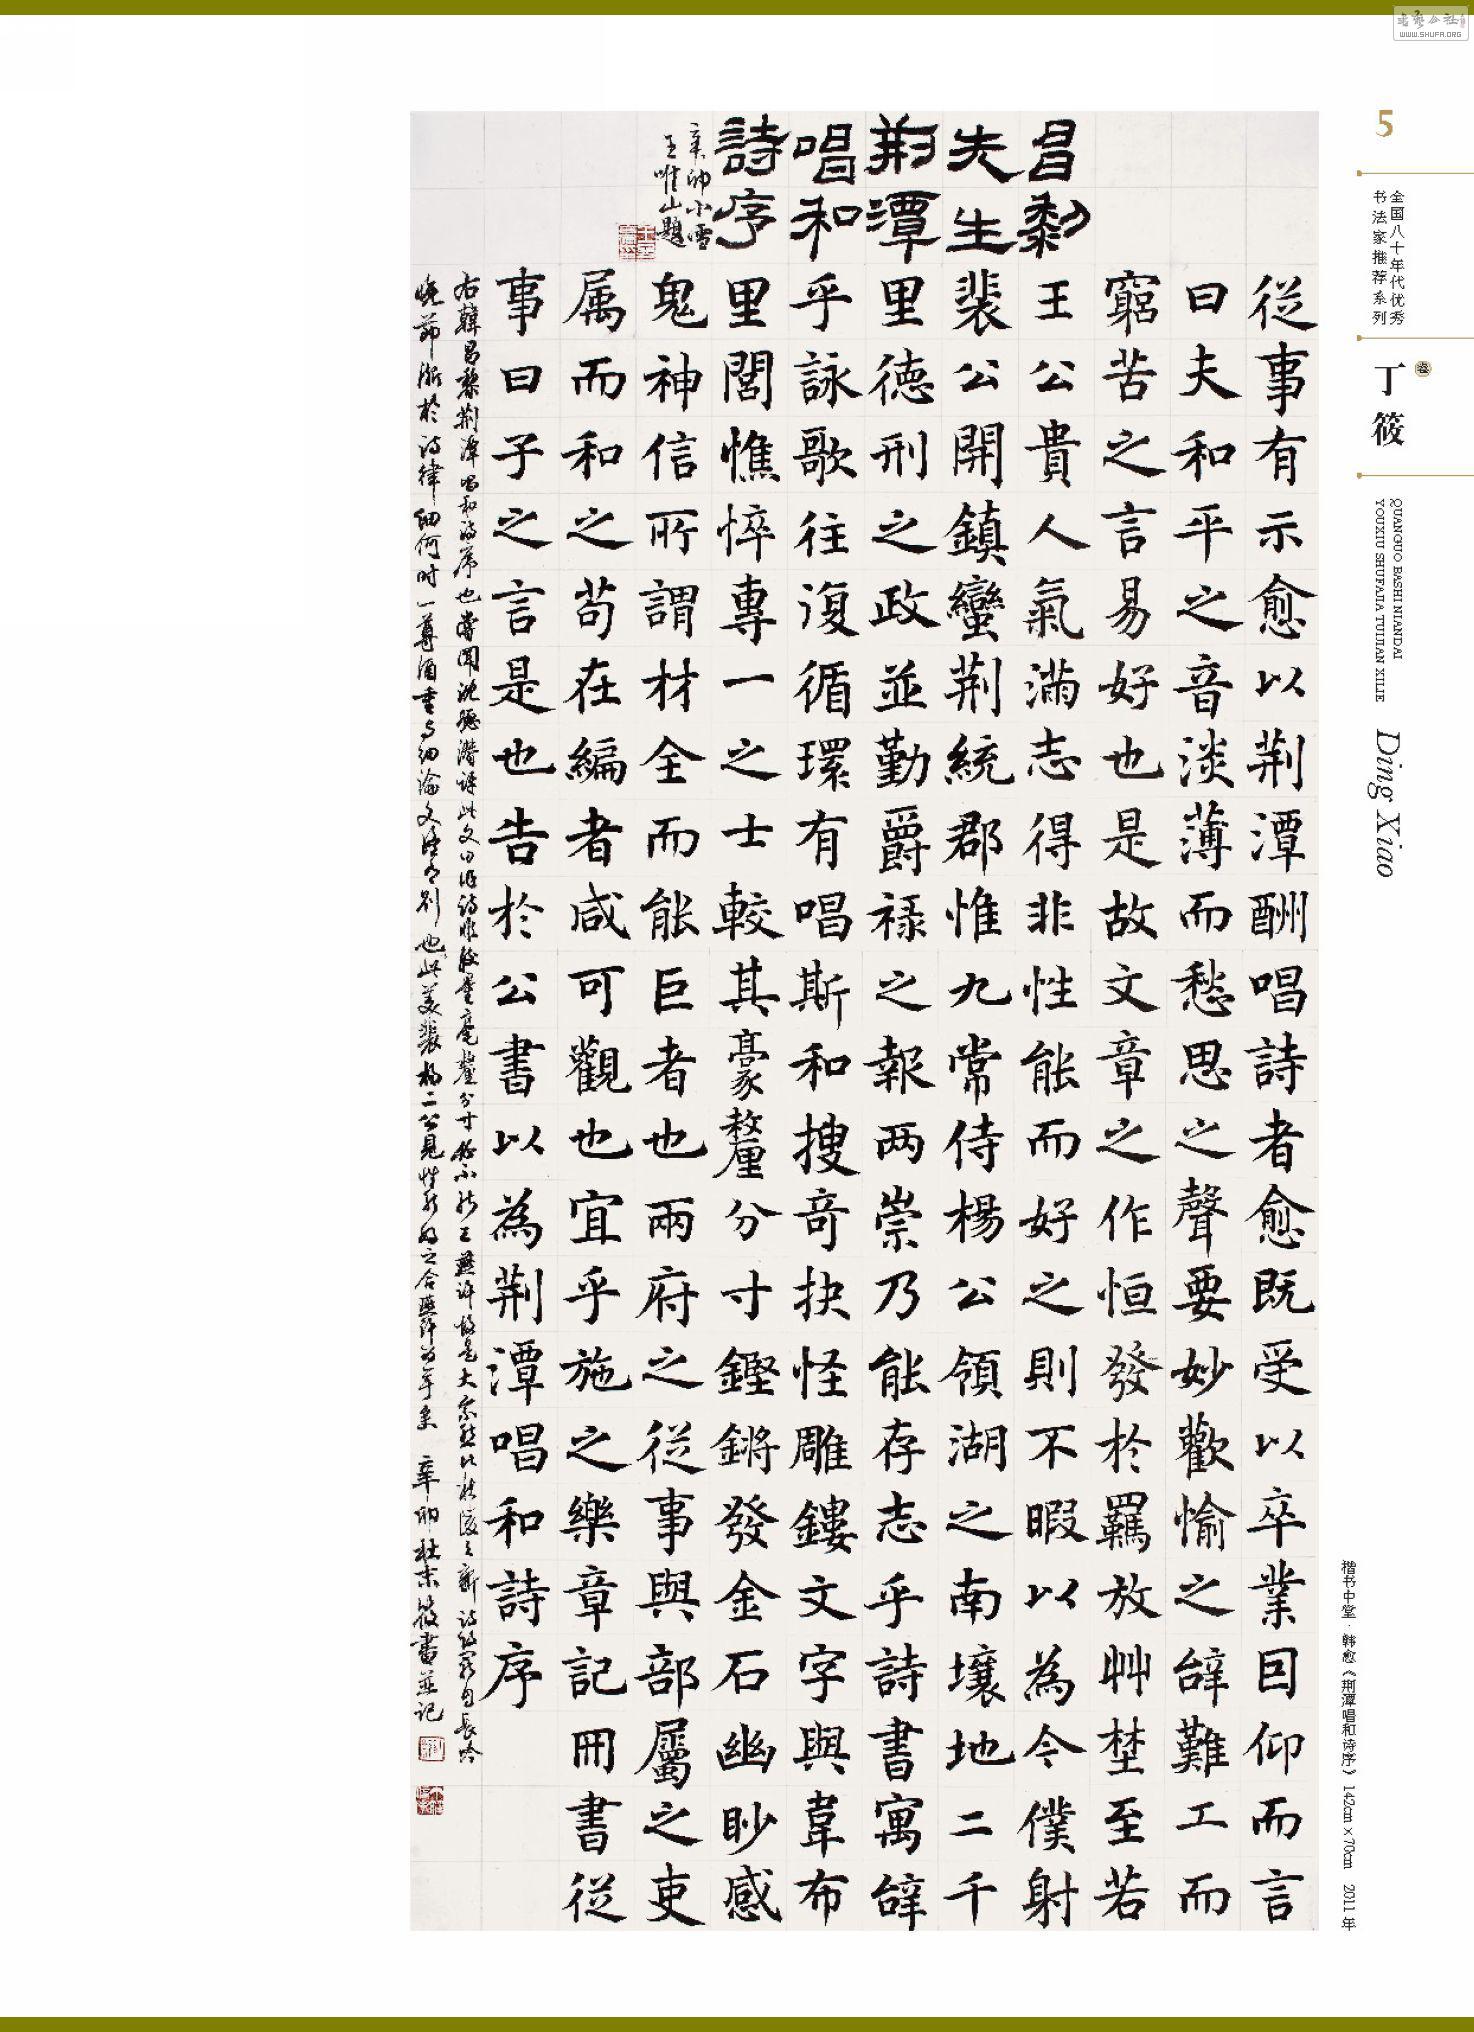 书艺公社
www.SHUFA.ORG
5
全国八十年代优秀
书法家推荐系列
丁筱
卷
QUANGUO BASHI NIANDAI
YOUXIU SHUFAJIA TUIJIAN XILIE
Ding Xiao
楷书中堂·韩愈《荆潭唱和诗序》 142cm×70cm 2011年
昌黎
先生
荆潭
唱和
詩序
辛卯小雪
王唯山題
從事有示愈以荆潭酬唱詩者愈既受以卒業囙仰而言
曰夫和平之音淡薄而愁思之聲要妙歡愉之辭難工而
窮苦之言易好也是故文章之作恒發於羈放艸埜至若
王公貴人氣滿志得非性能而好之則不暇以為今僕射
裴公開鎮蠻荆統郡惟九常侍楊公領湖之南壤地二千
里德刑之政並勤爵禄之報两崇乃能存志乎詩書寓辭
乎詠歌往復循環有唱斯和搜奇抉怪雕鏤文字與韋布
里閭憔悴專一之士較其豪釐分寸鏗鏘發金石幽眇感
鬼神信所謂材全而能巨者也兩府之從事與部屬之吏
属而和之苟在編者咸可觀也宜乎施之樂章記冊書從
事曰子之言是也告於公書以為荆潭唱和詩序
右韓昌黎荆潭唱和詩序也嘗聞沈德潛評此文曰
漸於詩律細何時一尊酒重與細論文 辛卯 筱書並記